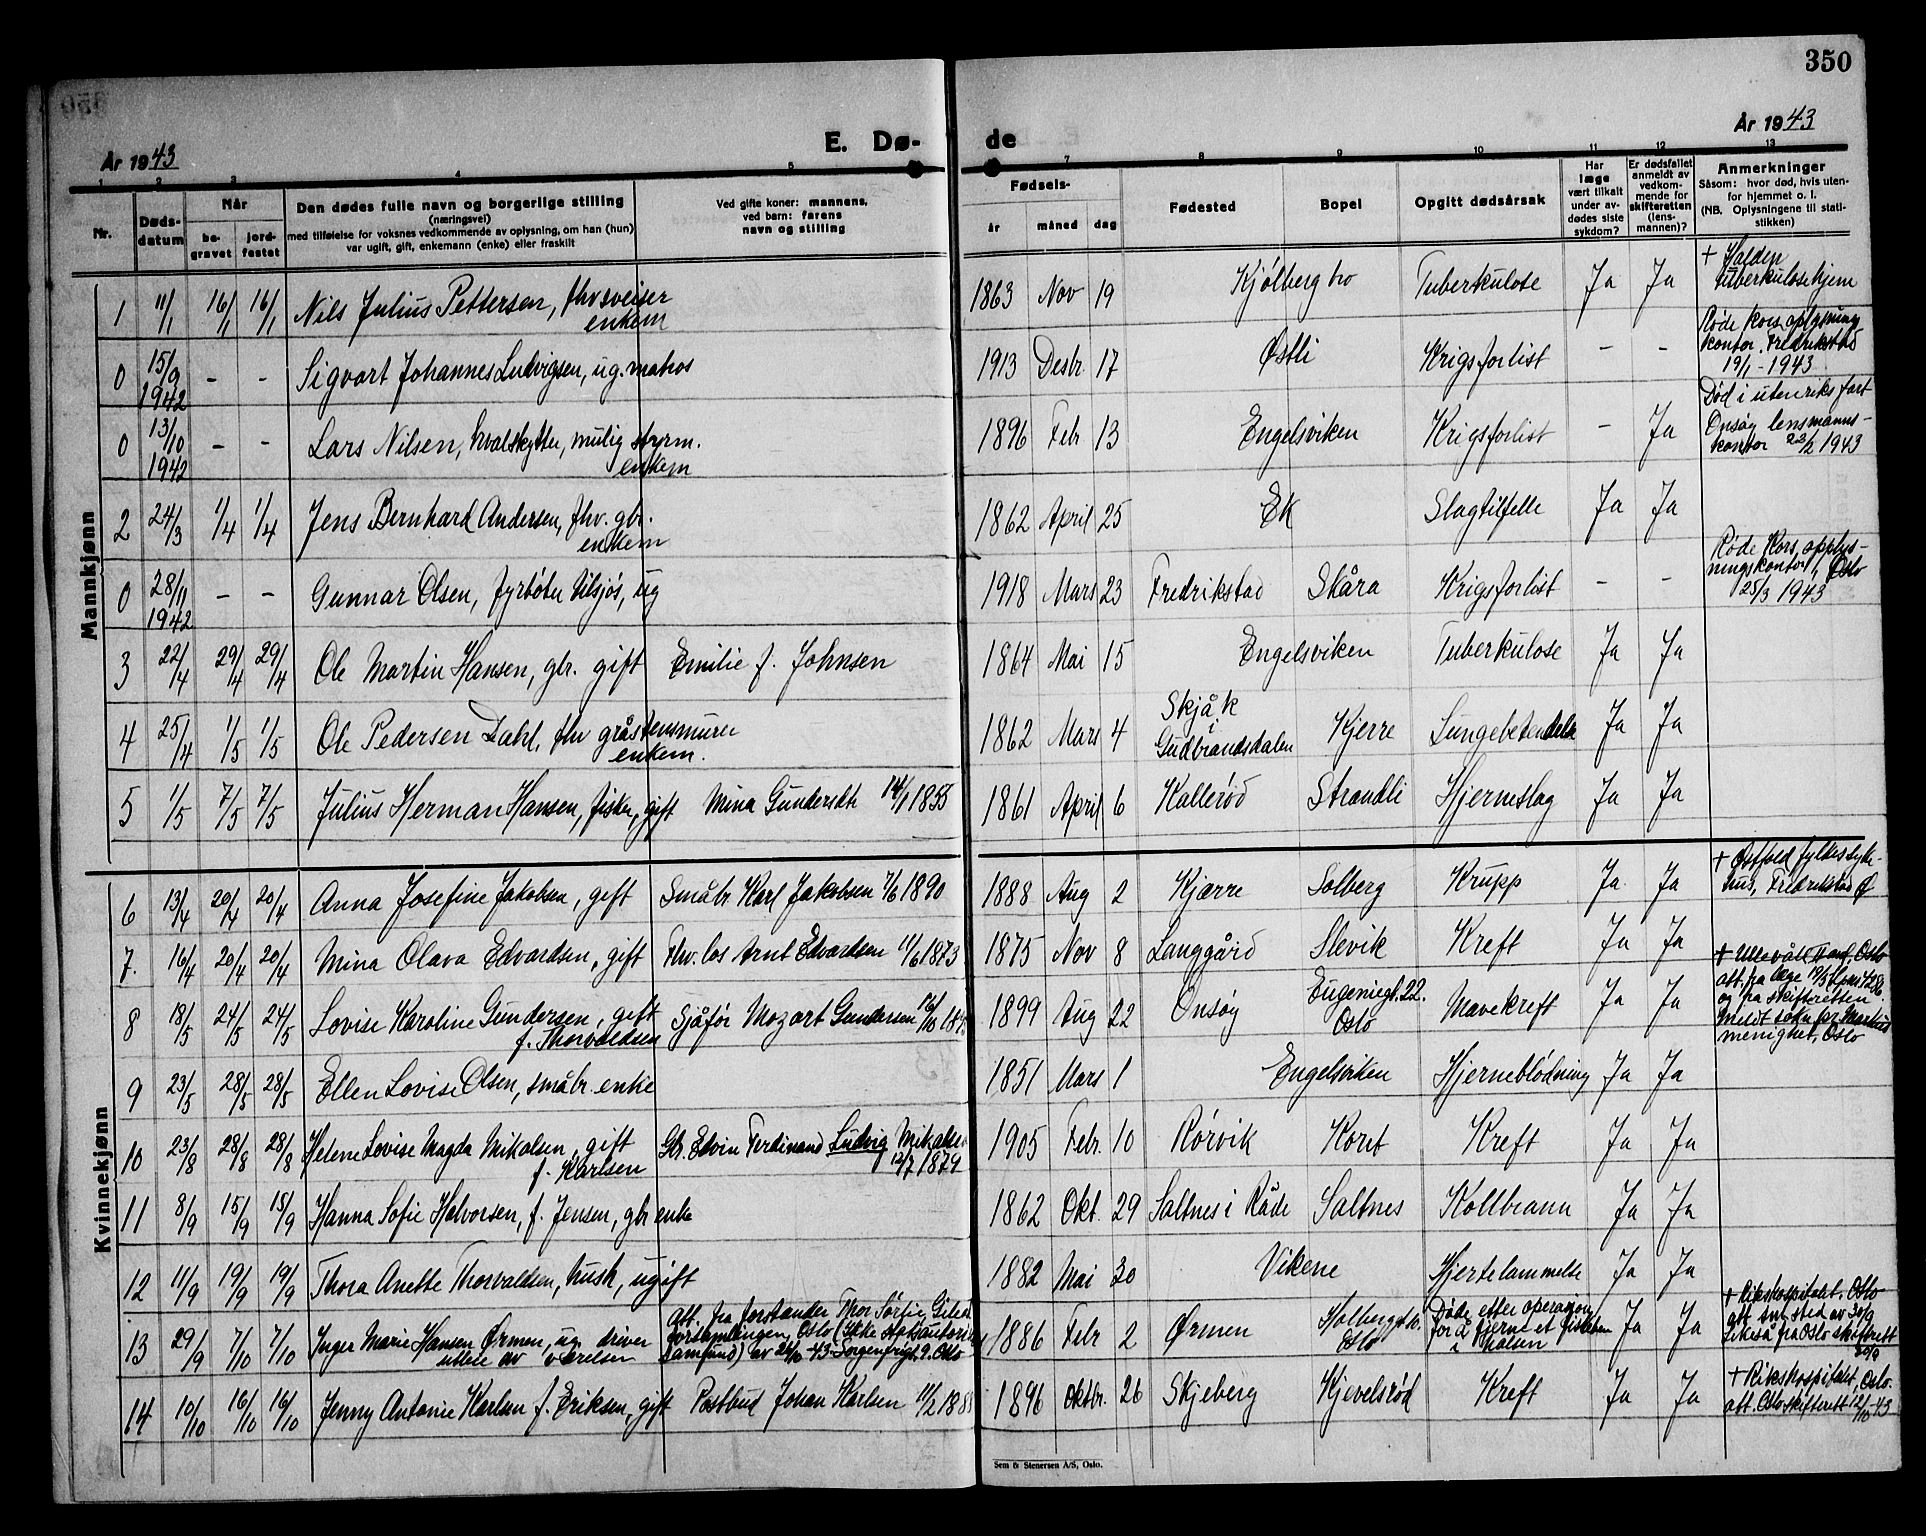 350
År 1943
E. Dø-
de
År 1943
1 2 3 4 5 7 8 9 10 11 12 13
Nr.
Døds-
datum
Når
be-
gravet
jord-
festet
Den dødes fulle navn og borgerlige stilling
(næringsvei)
med tilføielse for voksnes vedkommende av oplysning, om han (hun)
var ugift, gift, enkemann (enke) eller fraskilt
Ved gifte koner: mannens,
ved barn: farens
navn og stilling
Fødsels-
år måned dag
Fødested
Bopel
Opgitt dødsårsak
Har
læge
vært tilkalt
under av-
dødes siste
sykdom?
Er dødsfallet
anmeldt av
vedkom-
mende for
skifteretten
(lens-
mannen)?
Anmerkninger
Såsom: hvor død, hvis uten-
for hjemmet o. l.
(NB. Oplysningene til stati-
stikken)
Mannkjønn
1 11/1 16/1 16/1 Nils Julius Pettersen, fhv sveiser
enkem
1863 Nov 19 Kjølberg bro Tuberkulose Ja Ja
+ Halden
tuberkulosehjem
0 15/9 1942 - - Sigvart Johannes Ludvigsen, ug. matros
1913 Desbr. 17 Østli Krigsforlist - -
Røde Kors oplysning
kontor, Fredrikstad
19/1 - 1943
0 13/10 1942 - - Lars Nilsen, hvalskytter, mulig styrm.
enkem
1896 Febr 13 Engelsviken Krigsforlist - Ja
Død i utenriksfart
Onsøy lensmanns-
kontor 23/2 1943
2 24/3 1/4 1/4 Jens Bernhard Andersen, fhv. gbr.
enkem
1862 April 25 Ek Slagtilfelle Ja Ja
0 28/11 1942 - - Gunnar Olsen, fyrbøter tilsjøs, ug
1918 Mars 23 Fredrikstad Skåra Krigsforlist - -
Røde Kors, opplys-
ningskontor, Oslo
25/3 1943
3 22/4 29/4 29/4 Ole Martin Hansen, gbr. gift Emilie f. Johnsen
1864 Mai 15 Engelsviken Tuberkulose Ja Ja
4 25/4 1/5 1/5 Ole Pedersen Dahl, fhv gråstensmurer
enkem.
1862 Mars 4 Skjåk i Gudbrandsdalen Kjerre Lungebetendelse Ja Ja
5 1/5 7/5 7/5 Julius Herman Hansen, fisker, gift Mina Gundersdtr 14/1 1855
1861 April 6 Kallerød Strandli Hjerneslag Ja Ja
Kvinnekjønn
6 13/4 20/4 20/4 Anna Josefine Jakobsen, gift Småbr Karl Jakobsen 7/6 1890
1888 Aug 2 Kjærre Solberg Krupp Ja Ja
+ Østfold fylkessyke-
hus, Fredrikstad Ø
7. 16/4 20/4 20/4 Mina Olava Edvardsen, gift Fhv. los Arnt Edvardsen 11/6 1873
1875 Nov 8 Langgård Slevik Kreft Ja Ja
8 18/5 24/5 24/5 Lovise Karoline Gundersen, gift
f. Thorvaldsen
Sjåfør Mozart Gundersen
1899 Aug 22 Onsøy Eugeniegt. 22.
Oslo
Mavekreft Ja Ja
+ Ullevål, Oslo
att. fra læge 19/5
og fra skifteretten
Meldt sokn.pr. Markus
menighet, Oslo
9 23/5 28/5 28/5 Ellen Lovise Olsen, småbr. enke
1851 Mars 1 Engelsviken Hjerneblødning Ja Ja
10 23/8 28/8 28/8 Helene Lovise Magda Mikalsen, gift
f. Karlsen
Gbr. Edvin Ferdinand Ludvig Mikalsen
12/7 1879
1905 Febr. 10 Rørvik Koret Kreft Ja Ja
11 8/9 15/9 15/9 Hanna Sofie Halvorsen, f. Jensen, gbr enke
1862 Okt. 29 Saltnes i Råde Saltnes Kollbrann Ja Ja
12 11/9 19/9 19/9 Thora Anette Thorvaldsen, hush, ugift
1882 Mai 30 Vikene Hjertelammelse Ja Ja
13 29/9 7/10 7/10 Inger Marie Hansen Ørmen, ug. driver
utleie av værelser
Att. fra forstander Thor Sørlie Gilead
forsamlingen, Oslo (Ikke
samfund) av 24/10 -43 Sorgenfrigt. 9. Oslo
1886 Febr 2 Ørmen Holbergspl.
Oslo
Døde etter operasjon
for å fjerne et fiskeben
i halsen
Ja Ja
+ Rikshospitalet, Oslo
att sm. sted av 30/9
likeså fra Oslo skifterett
30/9
14 10/10 16/10 16/10 Jenny Antonie Karlsen f. Eriksen, gift Postbud Johan Karlsen
1896 Oktbr. 26 Skjeberg Kjevelsrød Kreft Ja Ja
+ Rikshospitalet, Oslo.
att. Oslo skifterett 12/10 -43
Sem & Stenersen A/S, Oslo.